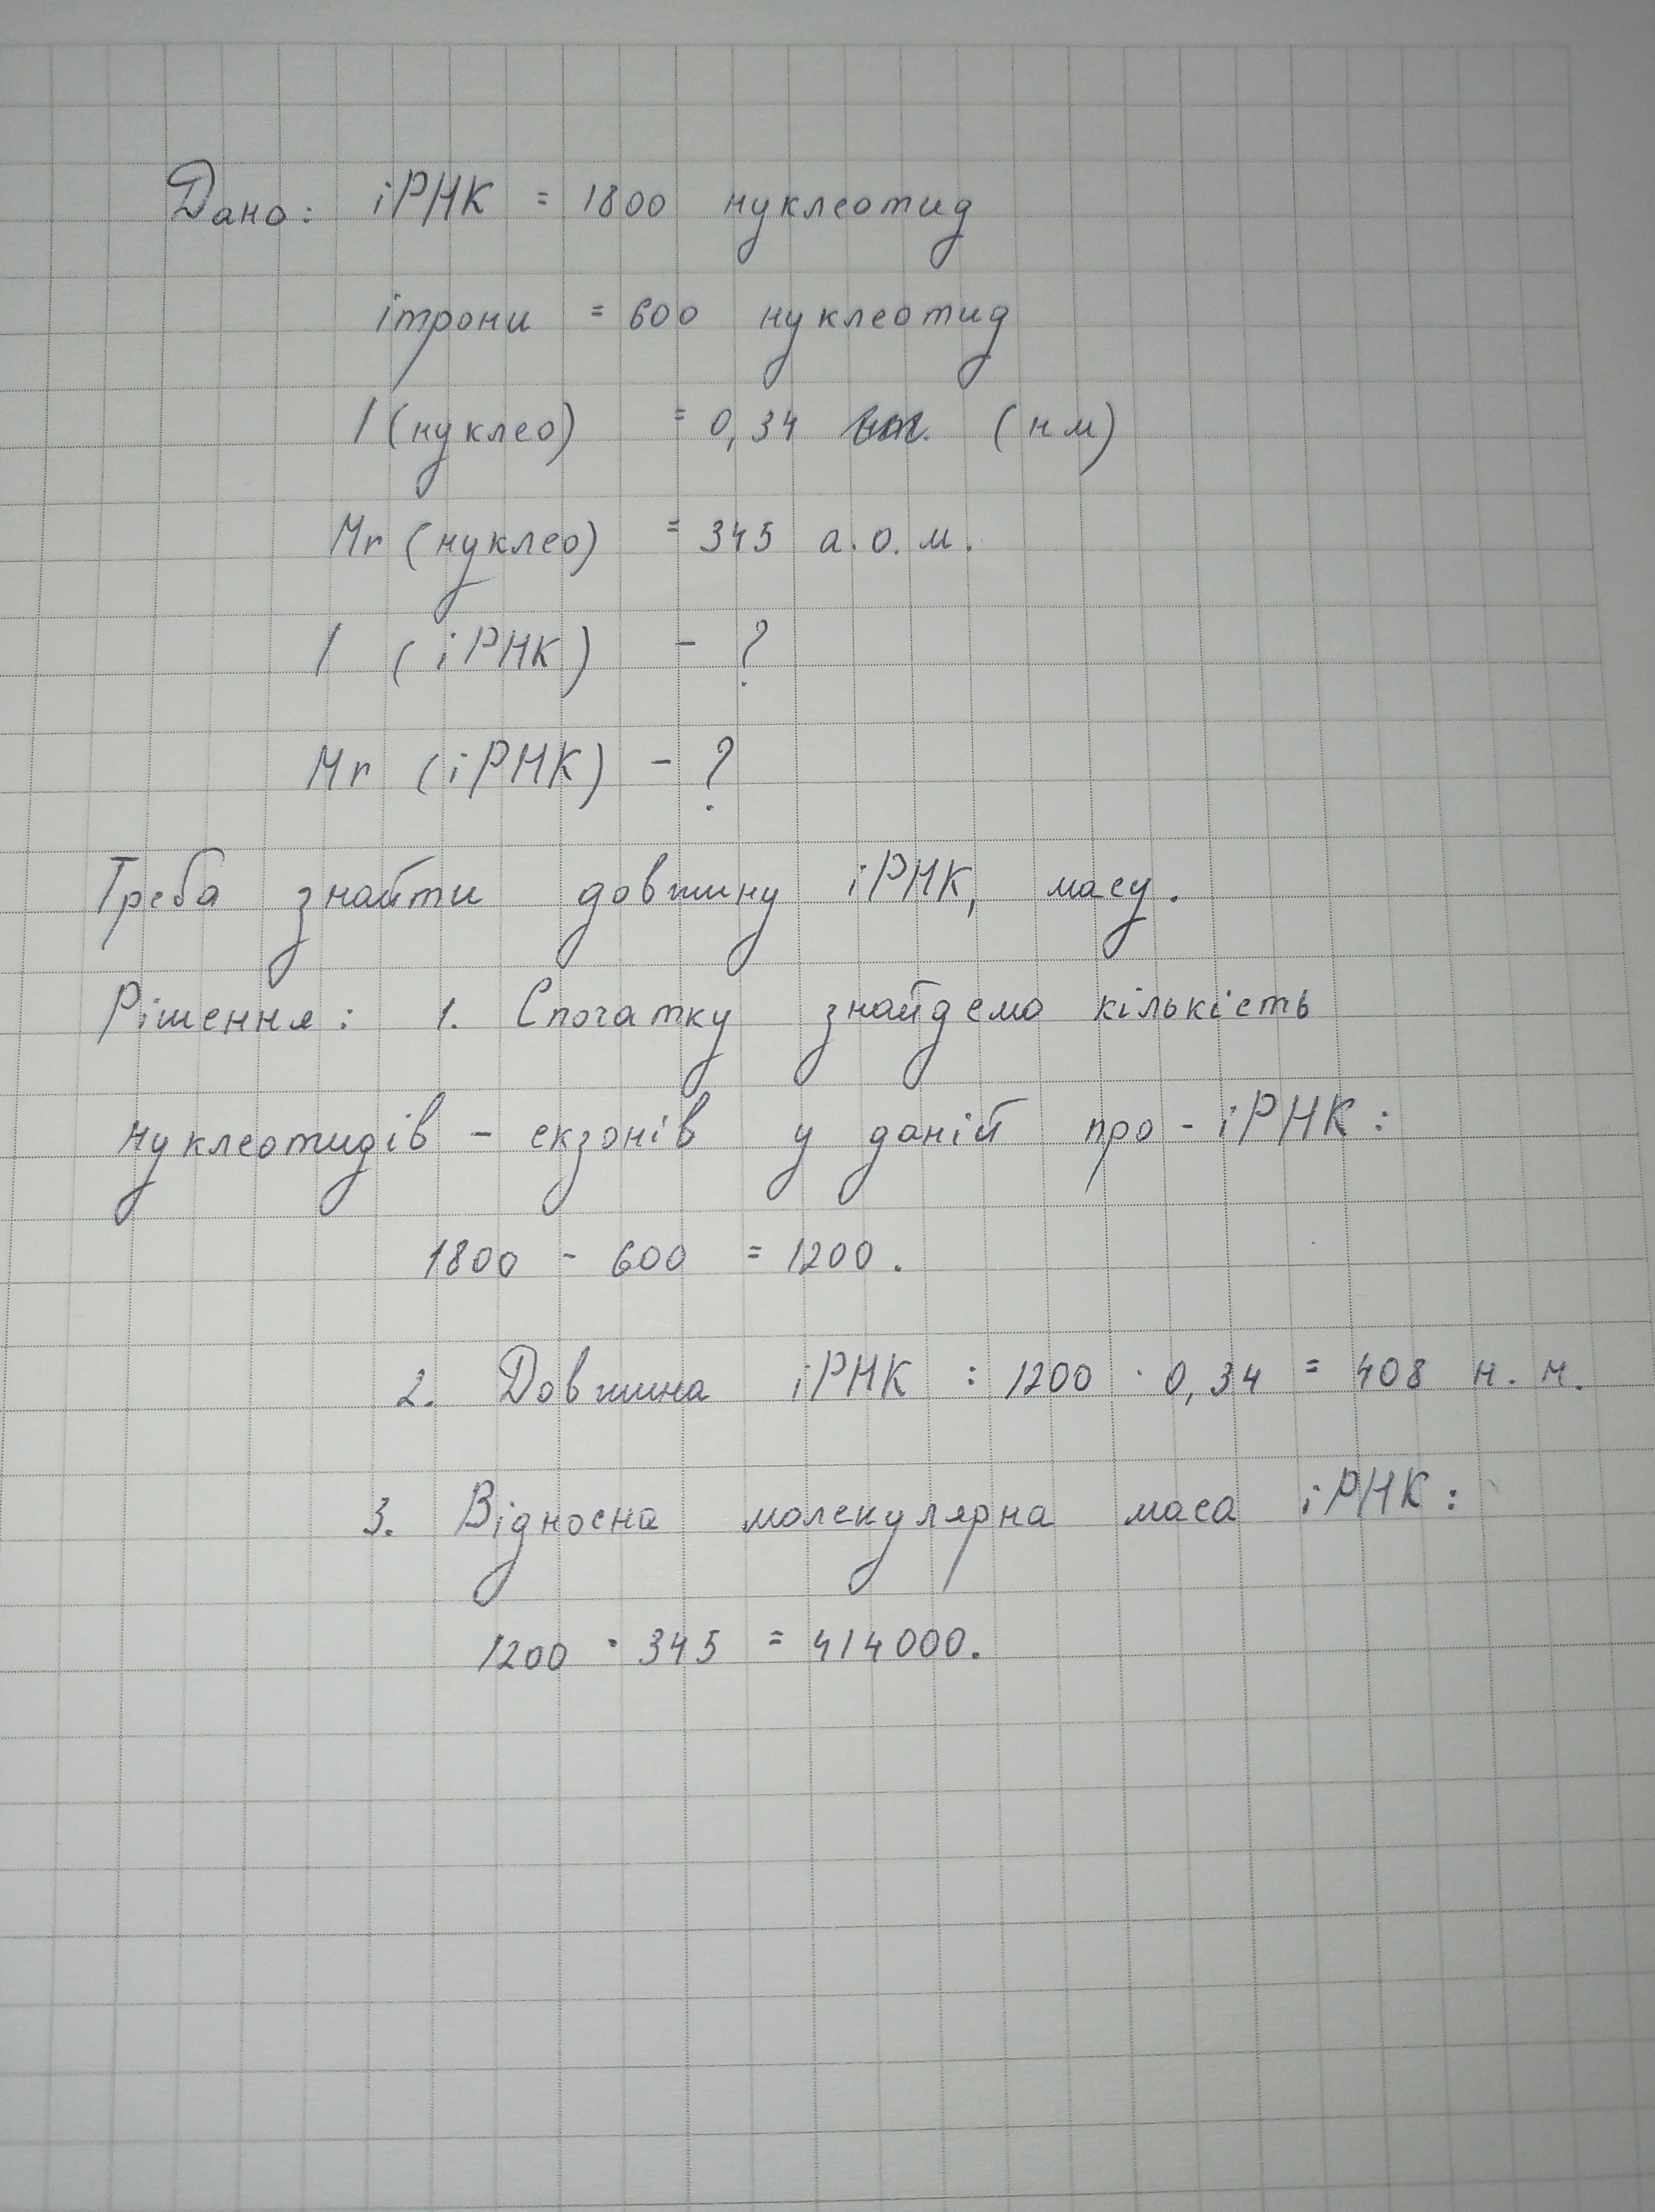 Дано: іРНК = 1800 нуклеотид
ітрони = 600 нуклеотид
l (нуклео) = 0,34 (нм)
Mr (нуклео) = 345 а.о.м.
l (іРНК) - ?
Mr (іРНК) - ?
Треба знайти довжину іРНК, масу.
Рішення: 1. Спочатку знайдемо кількість
нуклеотидів - екзонів у даній про - іРНК:
1800 - 600 = 1200.
2. Довжина іРНК : 1200 · 0,34 = 408 н.м.
3. Відносна молекулярна маса іРНК:
1200 · 345 = 414000.